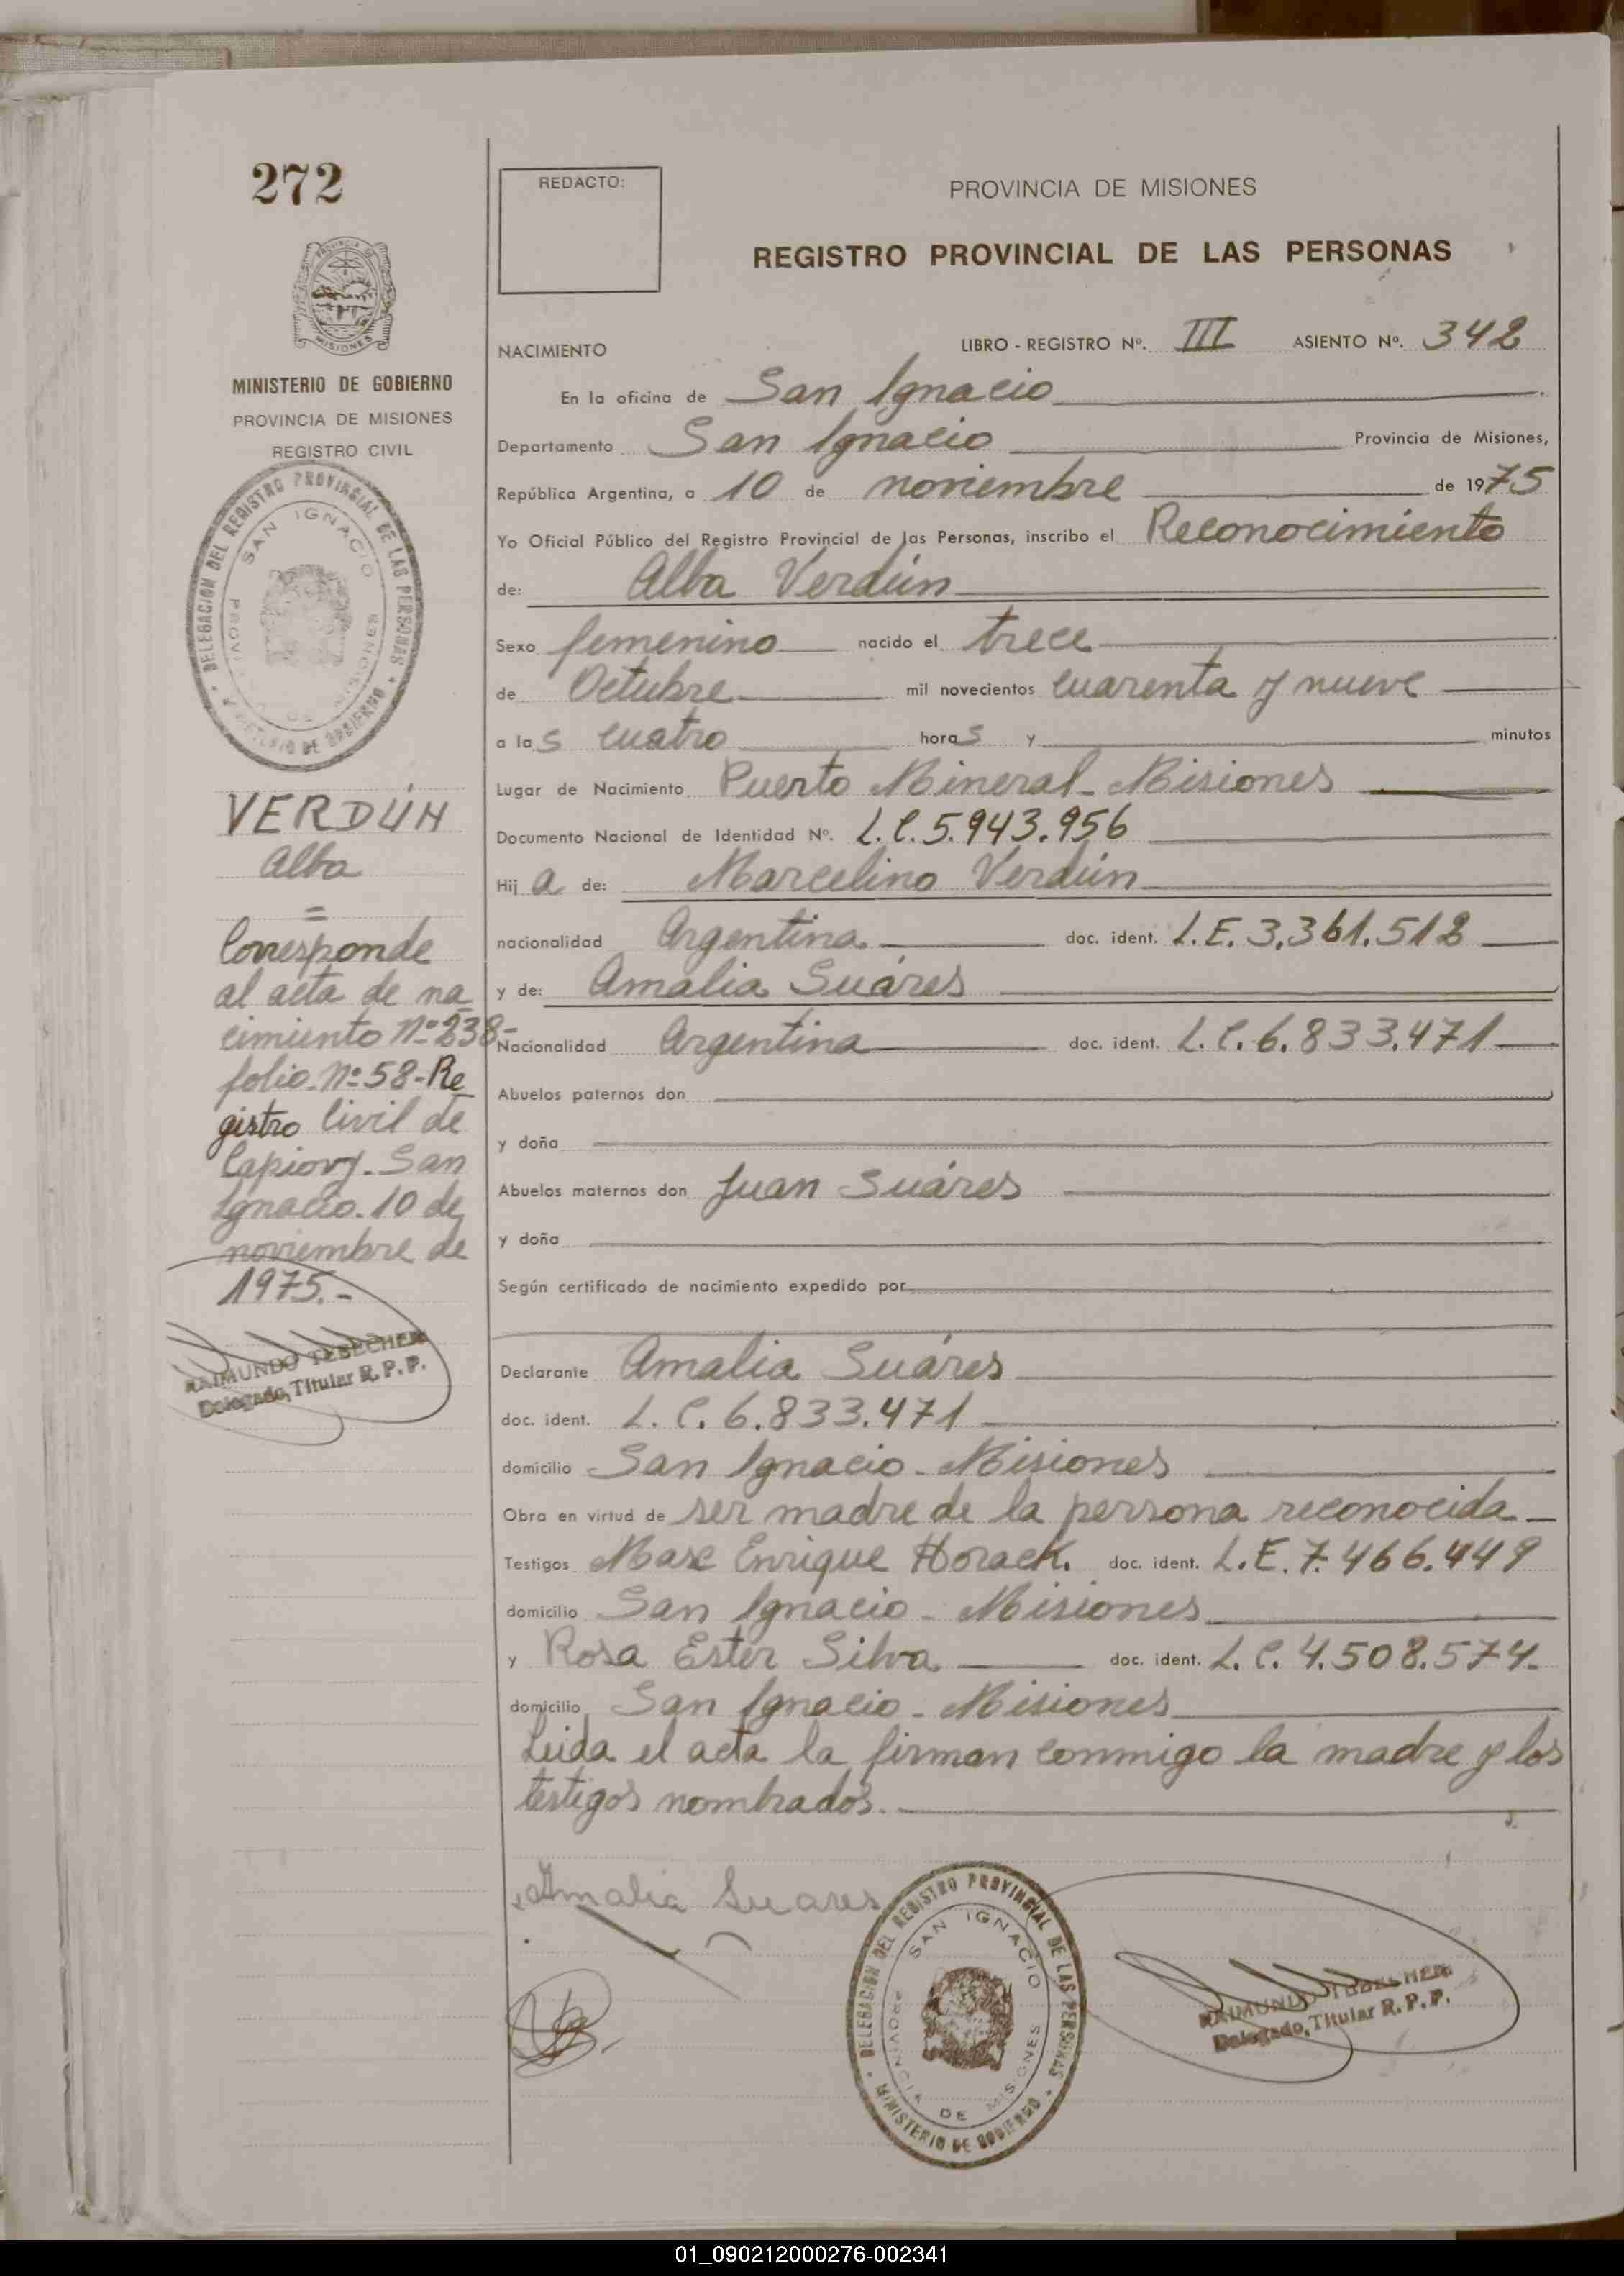 272
MINISTERIO DE GOBIERNO
PROVINCIA DE MISIONES
REGISTRO CIVIL
DELEGACION DEL REGISTRO PROVINCIAL DE LAS PERSONAS
SAN IGNACIO
VERDÚN
Alba
=
Corresponde
al acta de na
cimiento Nº 238-
folio Nº 58-Re
gistro Civil de
Capiovy. San
Ignacio. 10 de
noviembre de
1975.-
RAIMUNDO TEBECHEM
Delegado, Titular R. P. P.
REDACTO:
PROVINCIA DE MISIONES
REGISTRO PROVINCIAL DE LAS PERSONAS
NACIMIENTO LIBRO - REGISTRO Nº. III ASIENTO Nº. 342
En la oficina de San Ignacio
Departamento San Ignacio Provincia de Misiones,
República Argentina, a 10 de noviembre de 1975
Yo Oficial Público del Registro Provincial de las Personas, inscribo el Reconocimiento
de: Alba Verdún
Sexo femenino nacido el trece
de Octubre mil novecientos cuarenta y nueve
a las cuatro horas y minutos
Lugar de Nacimiento Puerto Mineral - Misiones
Documento Nacional de Identidad Nº. L.C. 5.943.956
Hij a de: Marcelino Verdún
nacionalidad Argentina doc. ident. L.E. 3.361.512
y de: Amalia Suáres
Nacionalidad Argentina doc. ident. L.C. 6.833.471
Abuelos paternos don
y doña
Abuelos maternos don Juan Suáres
y doña
Según certificado de nacimiento expedido por
Declarante Amalia Suáres
doc. ident. L. C. 6.833.471
domicilio San Ignacio - Misiones
Obra en virtud de ser madre de la persona reconocida
Testigos Max Enrique Horack. doc. ident. L.E. 7.466.449
domicilio San Ignacio - Misiones
y Rosa Ester Silva doc. ident. L. C. 4.508.574.
domicilio San Ignacio - Misiones
Leida el acta la firman conmigo la madre y los
testigos nombrados.
Amalia Suares
DELEGACION DEL REGISTRO PROVINCIAL DE LAS PERSONAS
SAN IGNACIO
PROVINCIA DE MISIONES
MINISTERIO DE GOBIERNO
RAIMUNDO TEBECHEM
Delegado, Titular R. P. P.
01_090212000276-002341